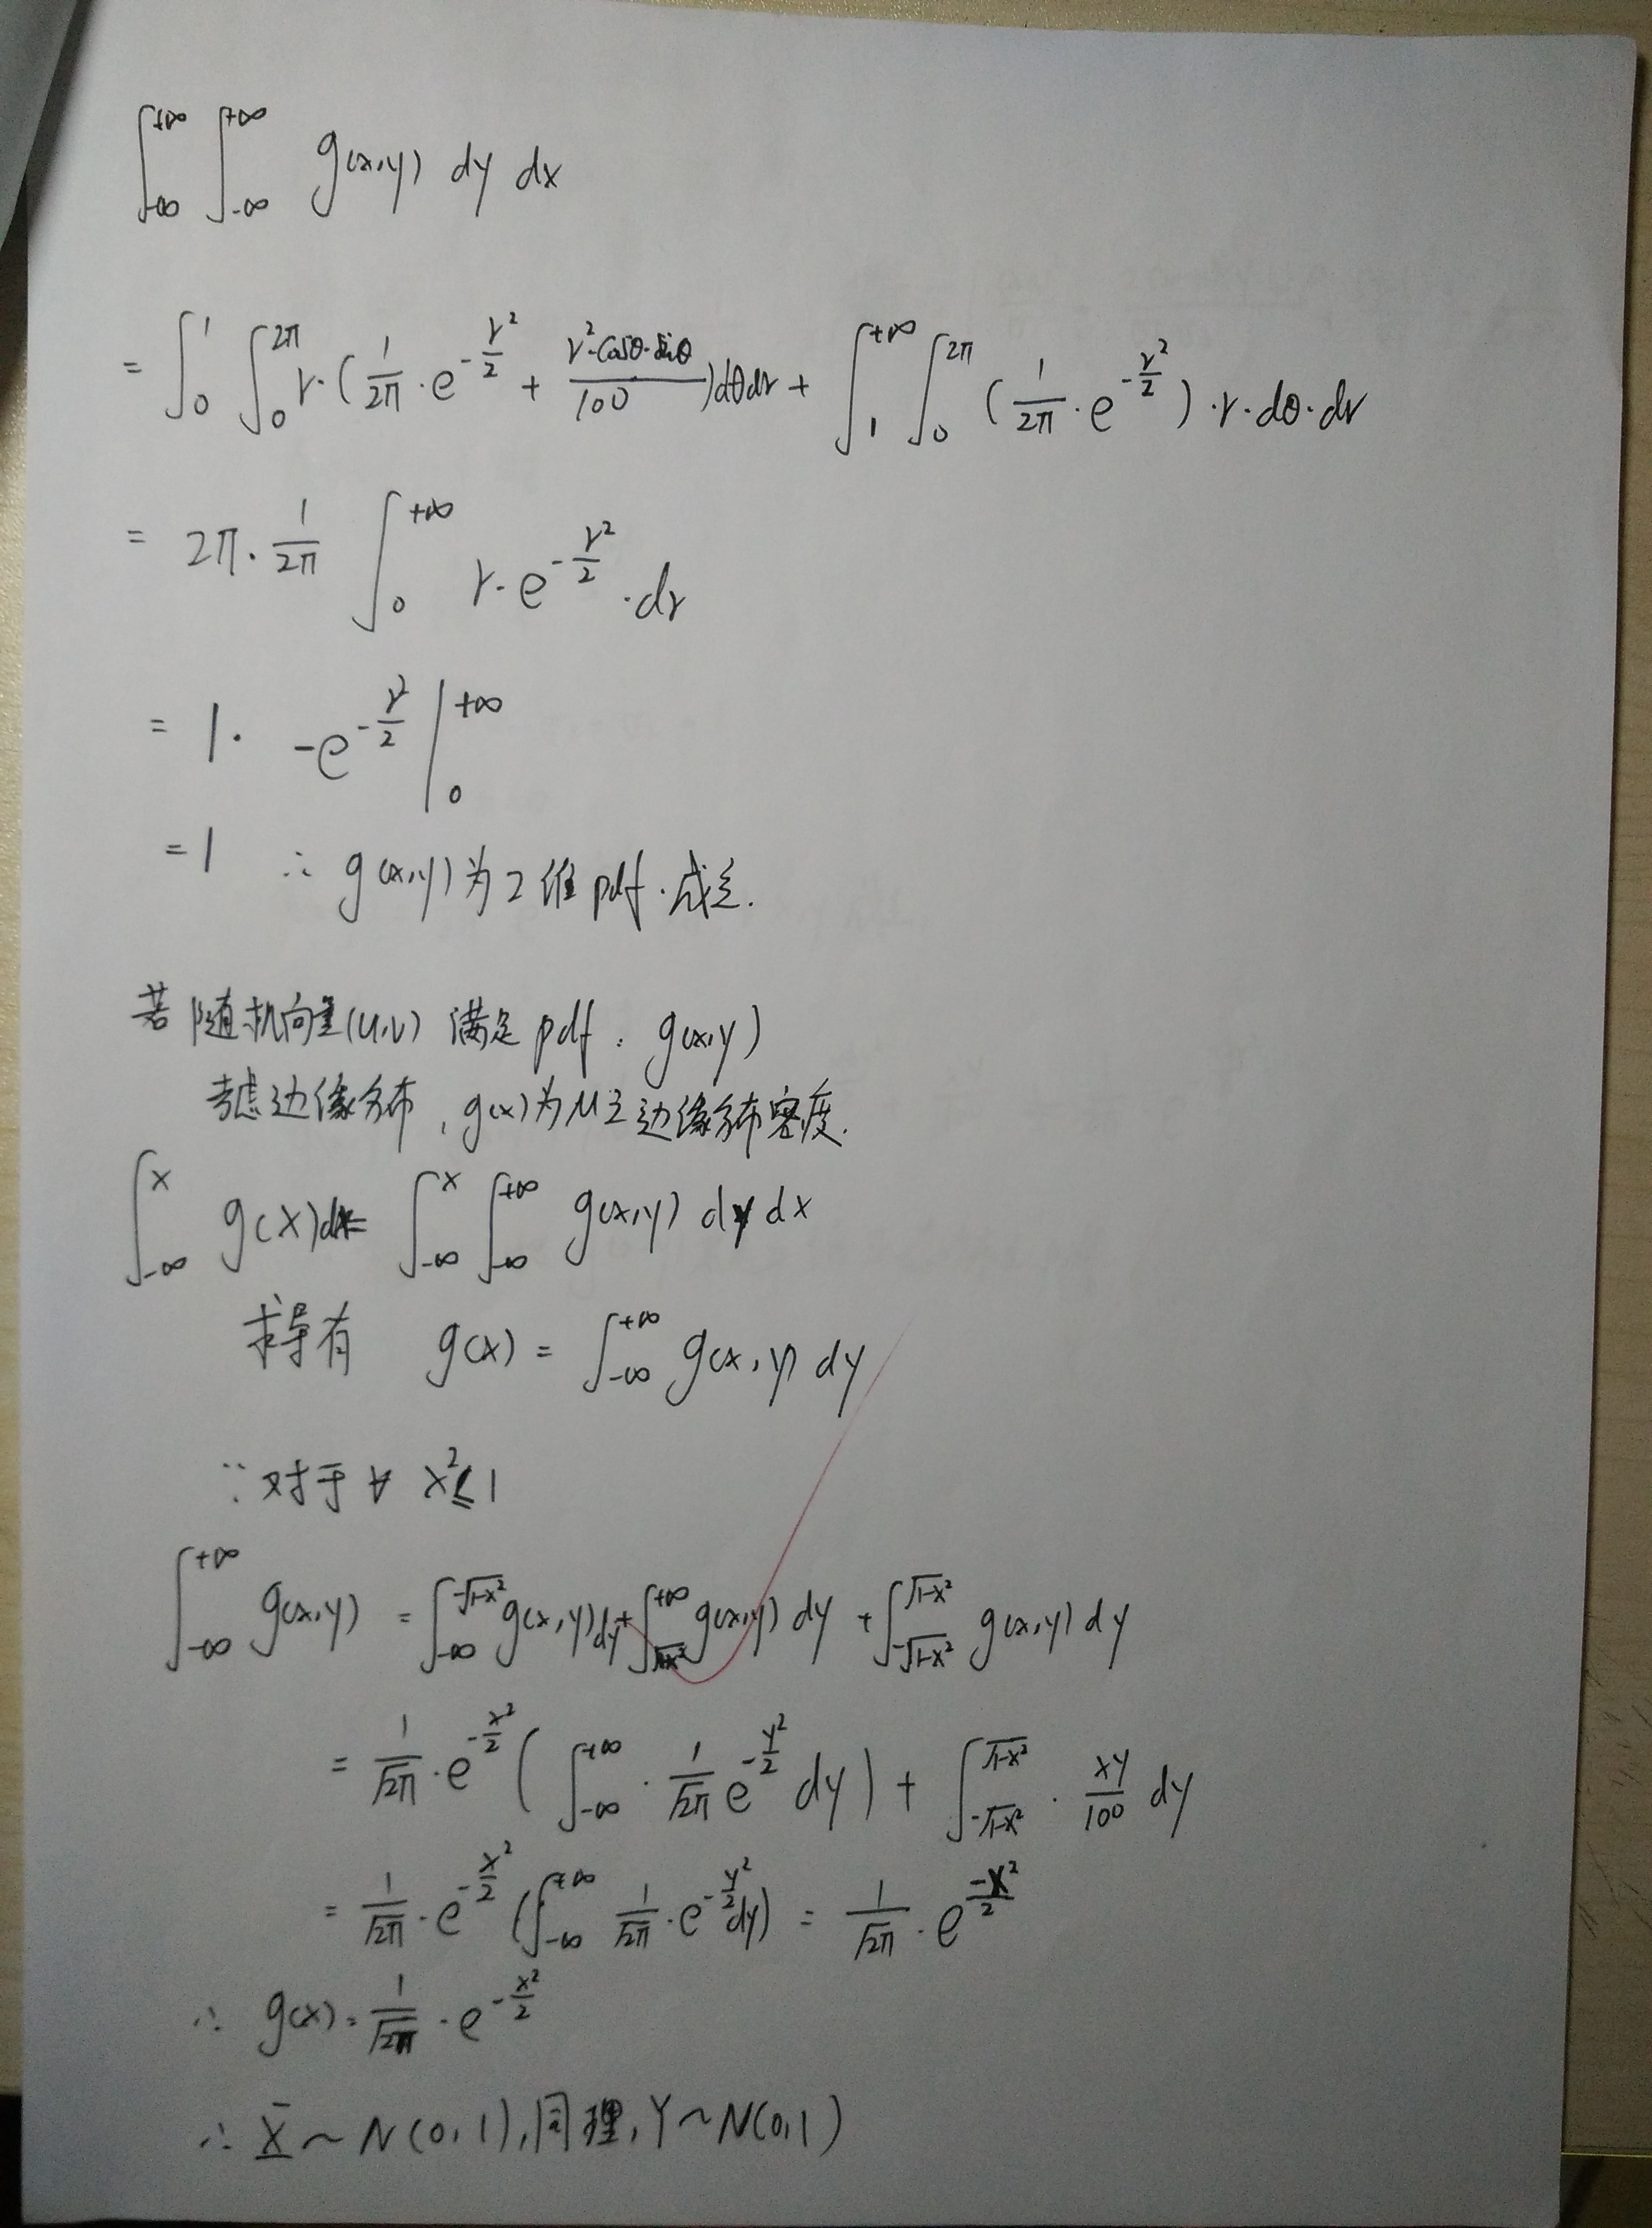 ∫_{-∞}^{+∞} ∫_{-∞}^{+∞} g(x,y) dy dx
= ∫_0^1 ∫_0^{2π} r·(1/2π · e^{-r²/2} + r²·cosθ·sinθ/100)dθdr + ∫_1^{+∞} ∫_0^{2π} (1/2π · e^{-r²/2})·r·dθ·dr
= 2π · 1/2π ∫_0^{+∞} r·e^{-r²/2}·dr
= 1· -e^{-r²/2} |_0^{+∞}
= 1 ∴ g(x,y)为2维pdf·成立.
若随机向量(u,v) 满足pdf: g(x,y)
考虑边缘分布, g(x)为u之边缘分布密度.
∫_{-∞}^x g(x)dx = ∫_{-∞}^x ∫_{-∞}^{+∞} g(x,y) dy dx
求导有 g(x) = ∫_{-∞}^{+∞} g(x,y) dy
∵对于∀ x²≤1
∫_{-∞}^{+∞} g(x,y) = ∫_{-∞}^{-√(1-x²)} g(x,y)dy + ∫_{√(1-x²)}^{+∞} g(x,y) dy + ∫_{-√(1-x²)}^{√(1-x²)} g(x,y) dy
= 1/√2π · e^{-x²/2} ( ∫_{-∞}^{+∞} · 1/√2π e^{-y²/2} dy ) + ∫_{-√(1-x²)}^{√(1-x²)} · xy/100 dy
= 1/√2π · e^{-x²/2} (∫_{-∞}^{+∞} 1/√2π · e^{-y²/2}dy) = 1/√2π · e^{-x²/2}
∴ g(x) = 1/√2π · e^{-x²/2}
∴ X ~ N(0,1),同理,Y~N(0,1)